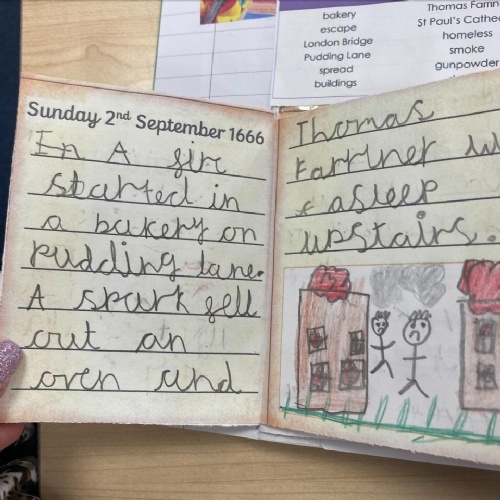 bakery
escape
London Bridge
Pudding Lane
spread
buildings
Thomas Farrin
St Paul's Cathe
homeless
smoke
gunpowder
Sunday 2nd September 1666
In A fire
started in
a bakery on
pudding lane.
A spark fell
out an
oven and
Thomas
Farriner
asleep
upstairs.